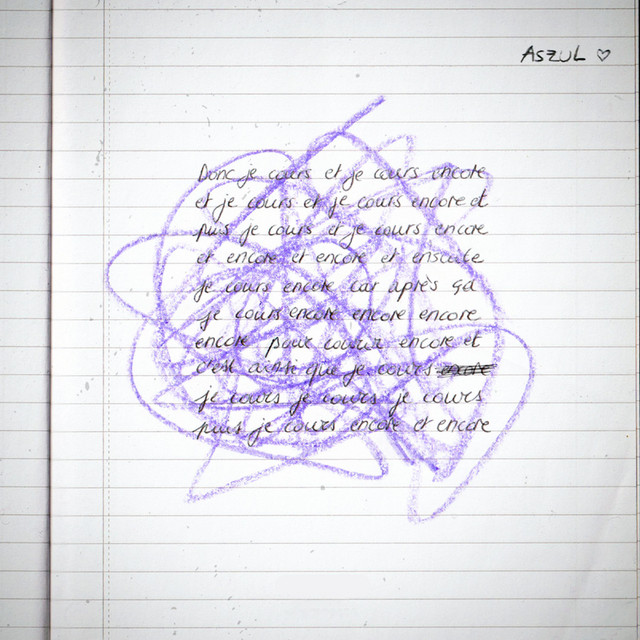 ASZUL ♡
Donc je cours et je cours encore
et je cours et je cours encore et
puis je cours et je cours encore
et encore et encore et ensuite
je cours encore car après ça
je cours encore encore encore
encore pour courir encore et
c'est ainsi que je cours
je cours je cours je cours
puis je cours encore et encore